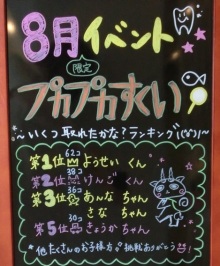 8月イベント
限定
プカプカすくい
～いくつ取れたかな?ランキング(じゅん)～
62コ
第1位 ようせい くん
38コ
第2位 けんご くん
36コ
第3位 あんな ちゃん
さな ちゃん
30コ
第5位 きょうか ちゃん
*他たくさんのお子様方 挑戦ありがとう!